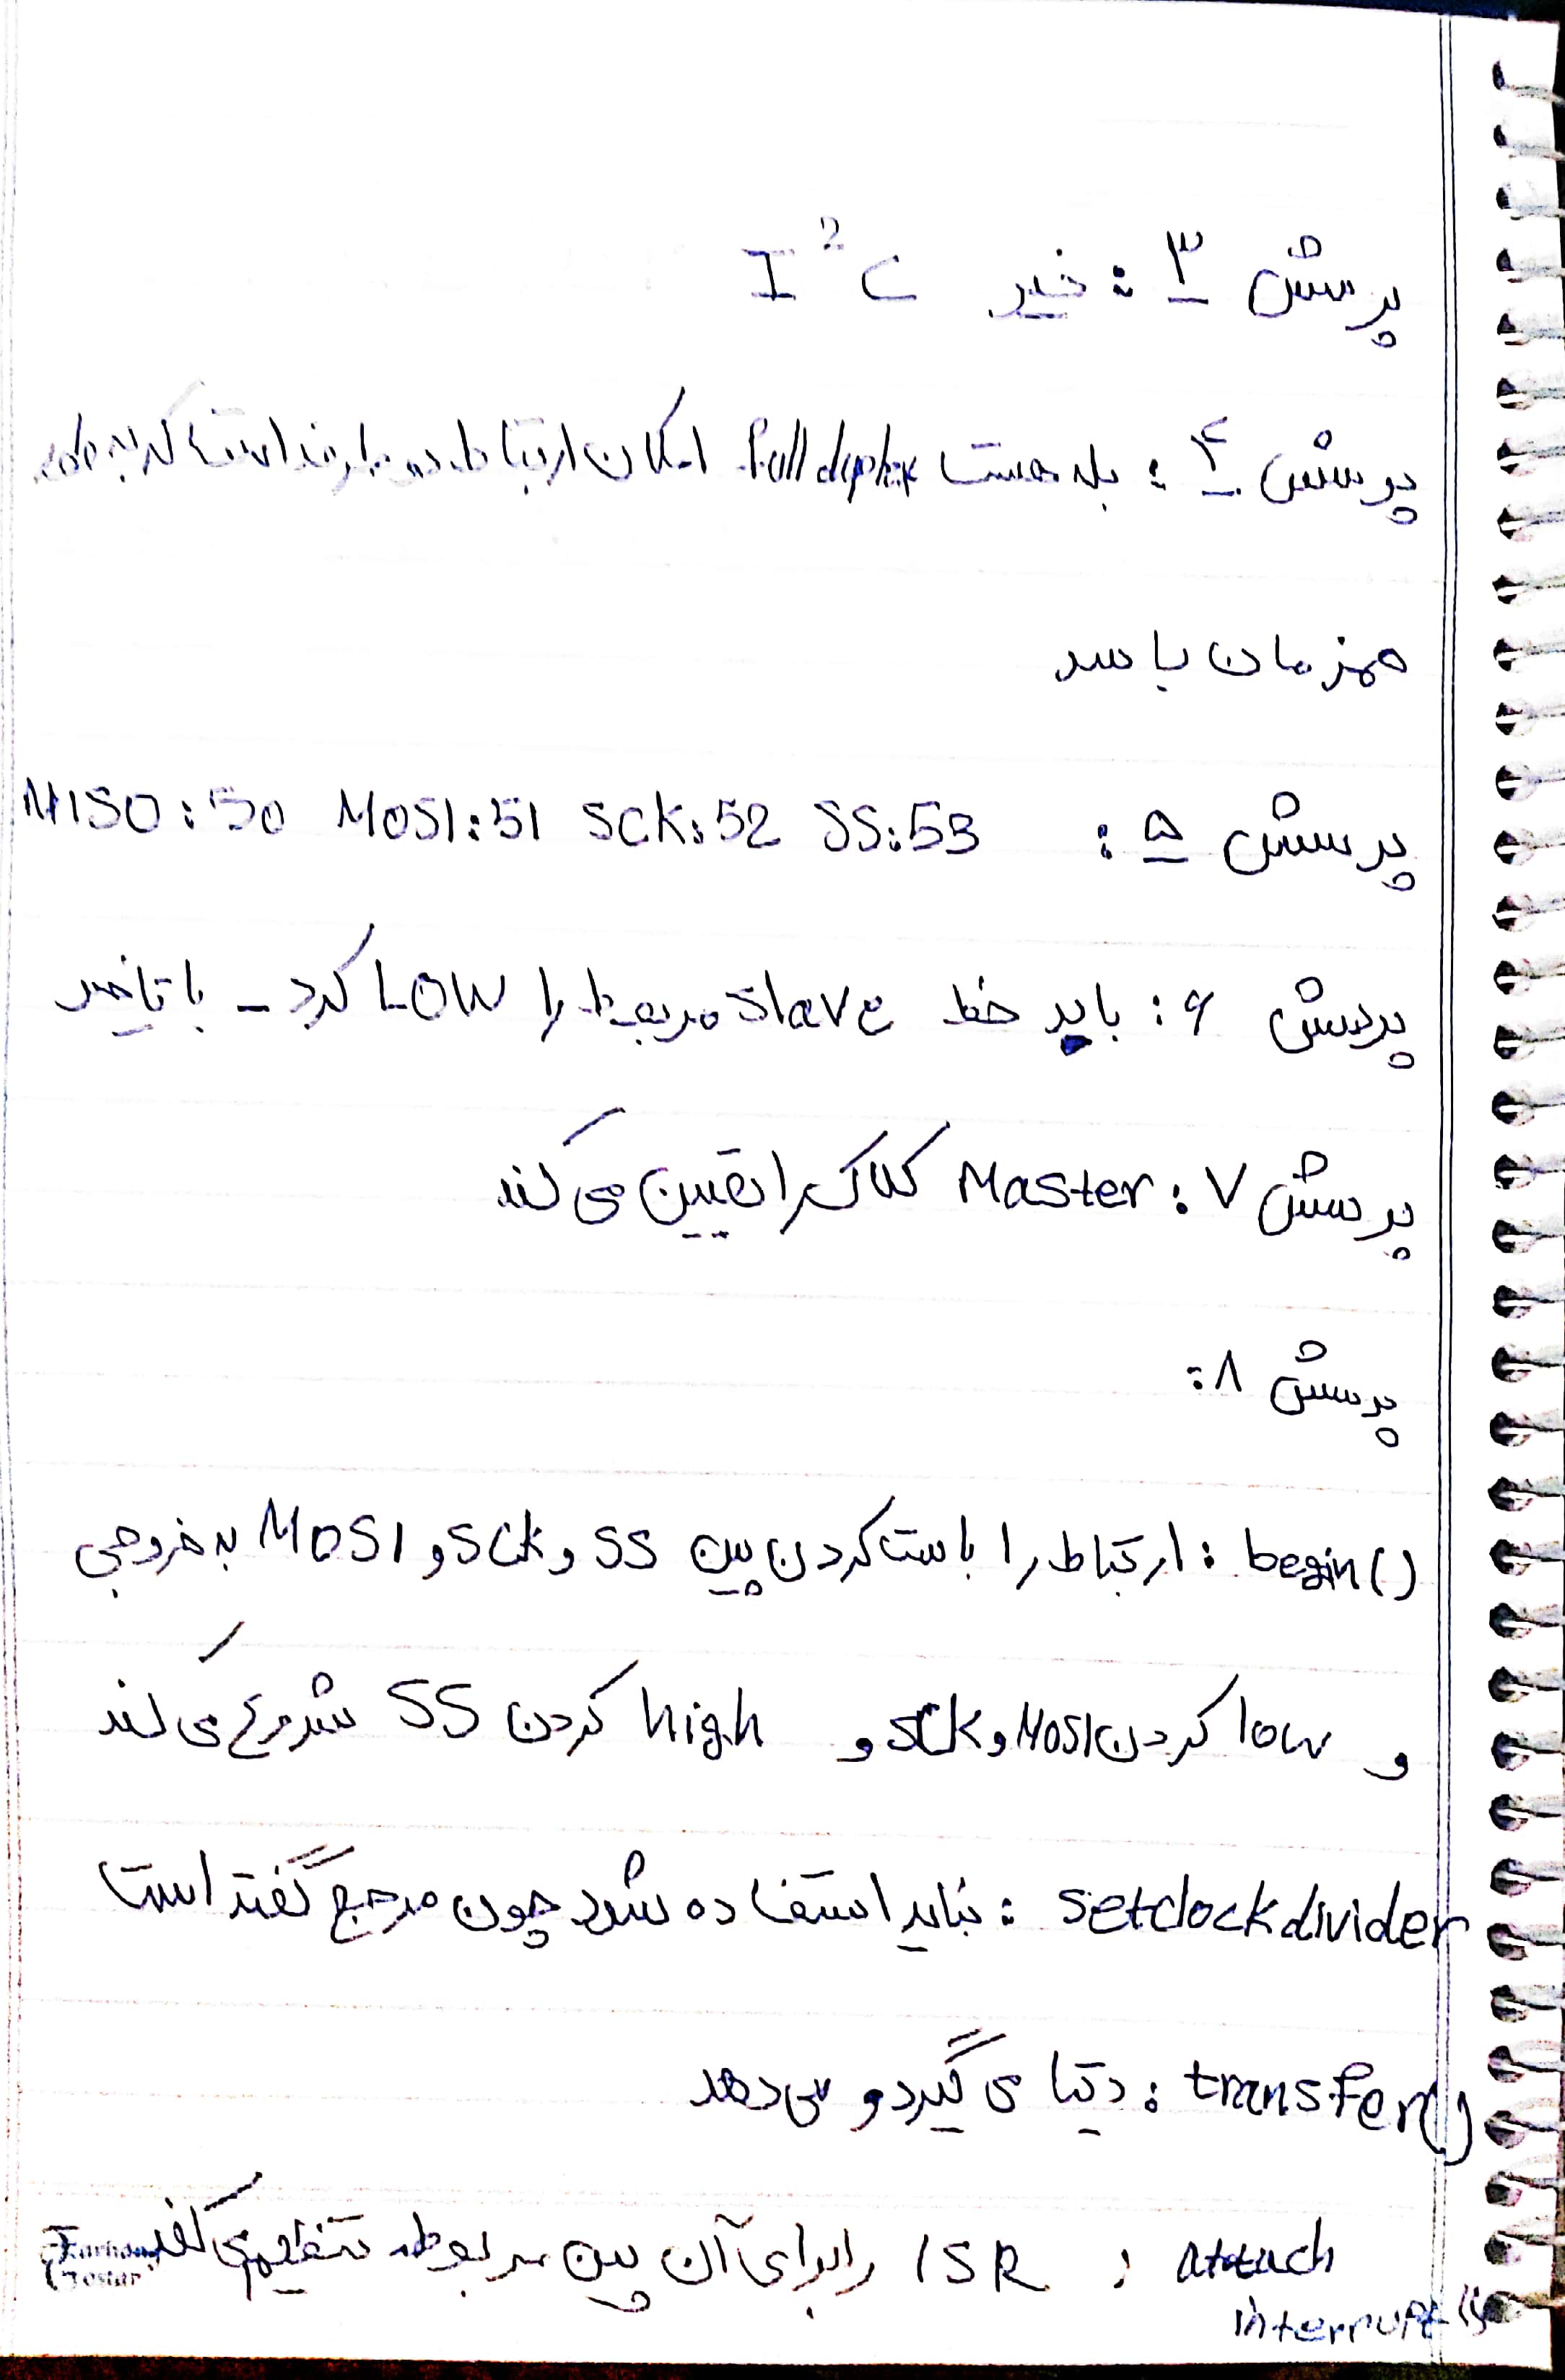 پرسش ۳ : خیر I²C
پرسش ۴ : بله هست full duplex امکان ارتباط دو طرفه است که به طور
همزمان باسد
پرسش ۵ : MISO:50 MOSI:51 SCK:52 SS:53
پرسش ۶ : باید خط slave مربوطه را LOW کرد - با تاخیر
پرسش ۷ : Master کلاک را تعیین می کند
پرسش ۸ :
begin() : ارتباط را با ست کردن پین SS و SCK و MOSI به خروجی
و low کردن MOSI و SCK و high کردن SS شروع می کند
setclockdivider : نباید استفاده شود چون مرجع گفته است
transfer() : دیتا می گیرد و می دهد
attach : ISR را برای آن پین مربوطه تنظیم می کند
interrupt()